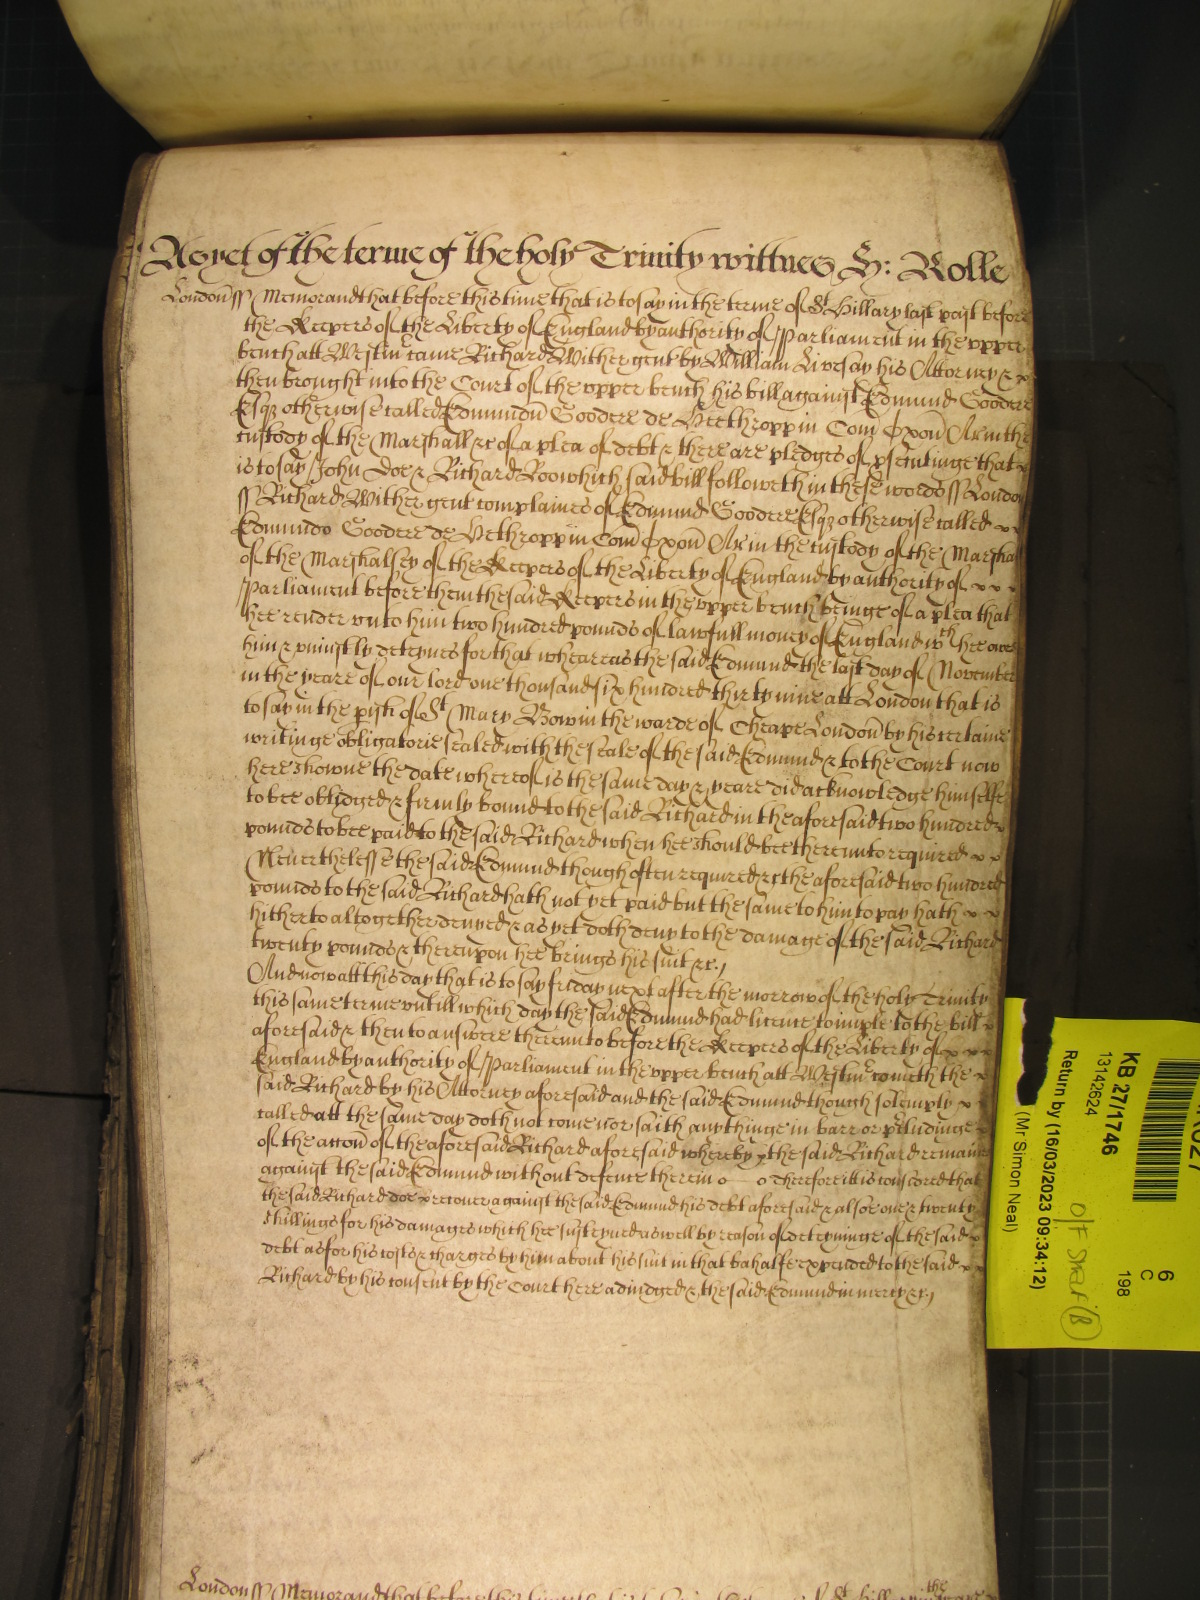 As yet of the terme of the holy Trinity wittnes H: Rolle
London ss Memorand that before this time that is to say in the terme of St Hillary last past before
the Keepers of the Liberty of England by authority of Parliament in the upper
bench att Westmr came Richard Wither gent by William Livesay his Attorney &
then brought into the Court of the upper bench his bill against Edmund Goodere
Esqz otherwise called Edmundu Goodere de Heethropp in Com Oxon Ar in the
custody of the Marshall &c of a plea of debt & there are pledges of psecutinge that
is to say John Doe & Richard Roo which said bill followeth in these words ss London
ss Richard Wither gent complaines of Edmund Goodere Esqz otherwise called
Edmundo Goodere de Hethropp in Com Oxon Ar in the custody of the Marshall
of the Marshalsey of the Keepers of the Liberty of England by authority of
Parliament before them the said Keepers in the upper bench beinge of a plea that
hee render unto him two hundred pounds of lawfull money of England wch hee owes
him & uniustly deteynes for that wheareas the said Edmund the last day of November
in the yeare of our lord one thousand six hundred thirty nine att London that is
to say in the pish of St Mary Bow in the warde of Cheape London by his certaine
writinge obligatorie sealed with the seale of the said Edmund & to the Court now
here showne the date whereof is the same day & yeare did acknowledge himselfe
to bee obliged & firmly bound to the said Richard in the aforesaid two hundred
pounds to bee paid to the said Richard when hee should bee thereunto required
Neverthelesse the said Edmund though often required &c the aforesaid two hundred
pounds to the said Richard hath not yet paid but the same to him to pay hath
hitherto altogether denyed & as yet doth deny to the damage of the said Richard
twenty pounds & thereupon hee brings his suit &c.
And now att this day that is to say friday next after the morrow of the holy Trinity
this same terme untill which day the said Edmund had licence to imple to the bill
aforesaid & then to answere thereunto before the Keepers of the Liberty of
England by authority of Parliament in the upper bench att Westmr cometh the
said Richard by his Attorney aforesaid and the said Edmund though solemply
called att the same day doth not come nor saith any thinge in barr or pcludinge
of the accon of the aforesaid Richard aforesaid whereby the said Richard remaines
against the said Edmund without defence therein o o Therefore itt is conscored that
the said Richard doe recover against the said Edmund his debt aforesaid & alsoe one & twenty
shillings for his damages which hee susteyned as well by reason of deteyninge of the said
debt as for his costs & charges by him about his suit in that bahalfe expended to the said
Richard by his consent by the Court here adiudged & the said Edmund in mercy &c.
London ss Memorand that before this
KB 27/1746
13142624
Return by (16/03/2023 09:34:12)
(Mr Simon Neal)
6
C
198
O/F Shelf (B)